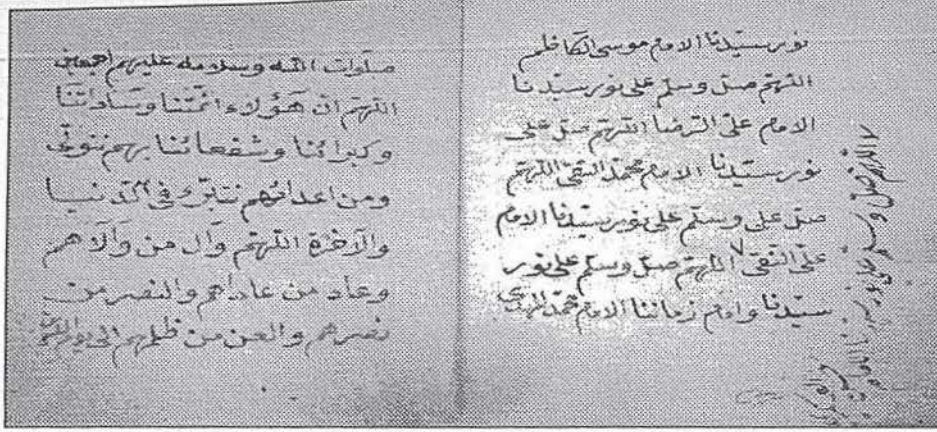 نور سيّدنا الامام موسى الكاظم
اللهم صل وسلم على نور سيّدنا
الامام على الرضا اللهم صل على
نور سيّدنا الامام محمد التقى اللهم
صل على وسلم على نور سيّدنا الامام
على النقى اللهم صل وسلم على نور
سيّدنا وامام زماننا الامام محمد المهدى
صلوات الله وسلامه عليهم اجمعين
اللهم ان هؤلاء ائمّتنا وساداتنا
وكبرائنا وشفعائنا بهم نتولى
ومن اعدائهم نتبرّء فى الدنيا
والآخرة اللهم وال من والاهم
وعاد من عاداهم والنصر من
نصرهم والعن من ظلمهم الى يوم